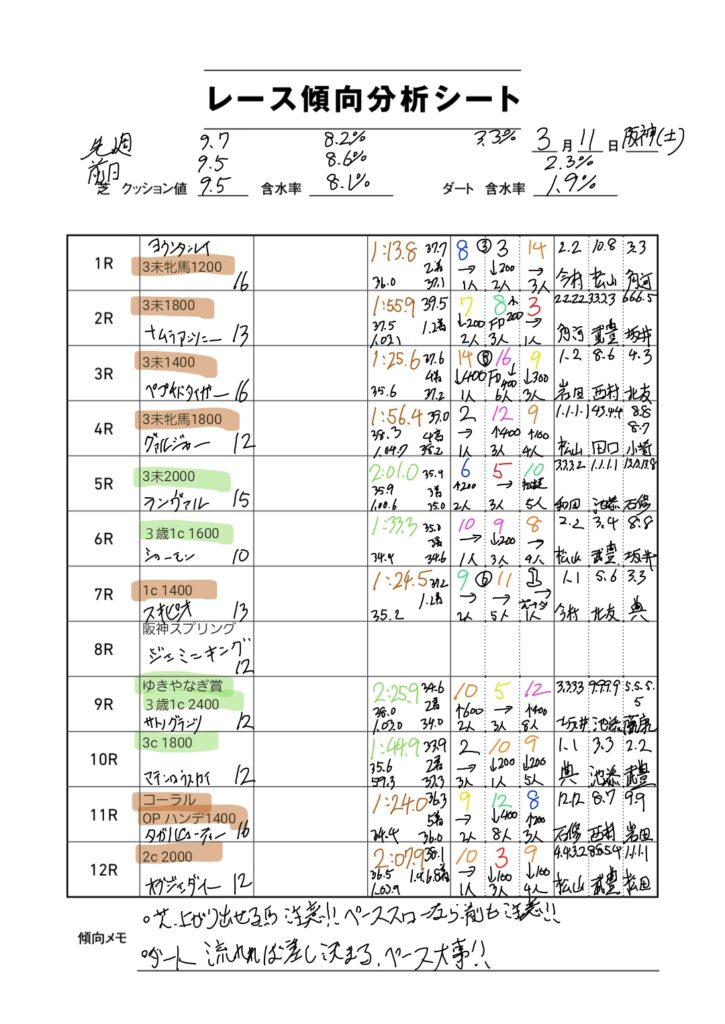 レース傾向分析シート
先週 9.7 8.2% 3.3% 3月11日 阪神(土)
前日 9.5 8.6% 2.3%
芝 クッション値 9.5 含水率 8.1% ダート 含水率 1.9%
1R
3未牝馬1200 16
1:13.8 37.7
36.0 37.1
8 ③ 3 14
→ ↓200 →
1人 2人 3人
2.2 10.8 3.3
今村 松山 角河
2R
3未1800
ナムラアンニー 13
1:55.9 39.5
37.5 1.2着
7 8 3
2人 3人 1人
2.2.2.2 3.3.2.3 6.6.6.5
角河 武豊 坂井
3R
3未1400
ペプチドタイガー 16
1:25.6 37.6
35.6 37.2
14 ⑧ 16 9
↓400 ↓300
1人 6人 3人
1.2 8.6 4.3
岩田 西村 北友
4R
3未牝馬1800
ヴァルジャー 12
1:56.4 39.0
38.3
1.04.7 38.2
2 12 9
→ ↑400 ↑100
1人 3人 4人
1.1.1.1 4.3.4.4 8.8
8.7
松山 田口 小崎
5R
3未2000
ランヴァル 15
2:01.0 35.4
35.9
1.00.6 35.0
6 5 10
↑200 →
2人 3人 5人
3.3.3.2 1.1.1.1
和田 池添 石脩
6R
３歳1c 1600
ショーモン 10
1:33.3 35.0
34.4 34.6
10 9 8
→ ↓200 →
1人 3人 4人
2.2 3.4 8.8
松山 武豊 坂井
7R
1c 1400
スキピオ 13
1:24.5 37.2
35.2
9 ⑥ 11 1
→ →
2人 5人 1人
1.1 5.6 3.3
今村 北友 典
8R
阪神スプリング
ジェミニキング
12
9R
ゆきやなぎ賞
３歳1c 2400
サトノグランツ 12
2:25.9 34.6
38.0 2着
1.03.0 34.0
10 5 12
↑600 → ↑400
2人 3人 8人
3.3.3.3 9.9.9.9 5.5.5.
5
坂井 池添 藤康
10R
3c 1800
マテンロウスカイ 12
1:44.9 33.9
35.6 2着
59.3 33.3
2 10 9
→ ↓200 ↓200
3人 1人 5人
1.1 3.3 2.2
典 池添 武豊
11R
コーラル
OP ハンデ1400
タガノビューティー 16
1:24.0 36.3
34.4 36.0
9 12 8
→ ↓400 ↑200
2人 8人 3人
12.12 8.7 9.9
石脩 西村 岩田
12R
2c 2000
オグジェダイー 12
2:07.9 38.1
36.5
1.03.9
10 3 9
→ ↓100 ↓100
1人 3人 4人
4.4.3.2 8.8.5.4 1.1.1.1
松山 武豊 松田
傾向メモ
○芝、上がり出せる馬注意!! ペーススローなら前も注意!!
○ダート 流れれば差し決まる、ペース大事!!